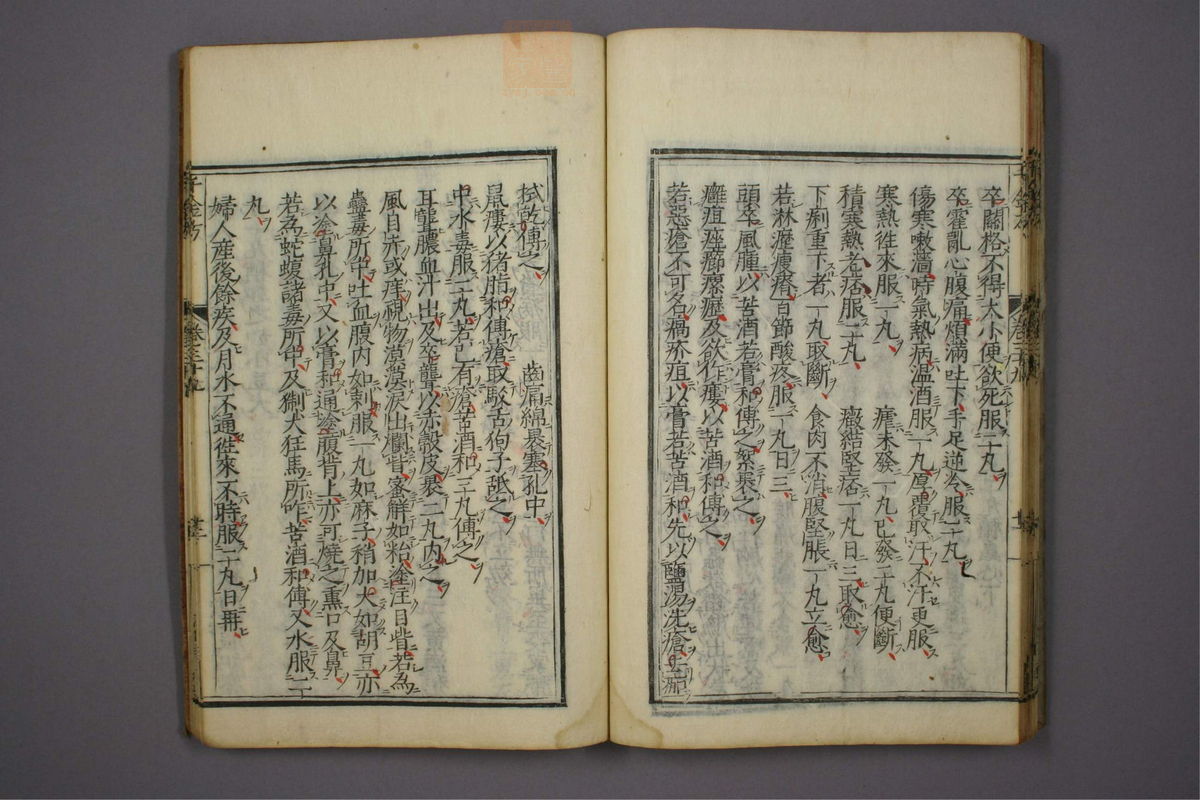 卒關格不得大小便欲死服二丸
卒霍亂心腹痛煩滿吐下手足逆冷服二丸
傷寒嗽嗇時氣熱病温酒服一丸厚覆取汗不汗更服
寒熱徃來服一丸　瘧未發一丸已發二丸便斷
積寒熱老痞服二丸　癥結堅痞一丸日三取愈
下痢重下者一丸取斷　食肉不消腹堅脹一丸立愈
若淋瀝瘦瘠百節酸疼服一丸日三
頭卒風腫以苦酒若膏和傅之絮裹之
癰疽痤癤瘰癧及欲作瘻以苦酒和傅之
若惡瘡不可名瘑疥疽以膏若苦酒和先以鹽湯洗瘡去痂
拭乾傅之　齒痛綿裹塞孔中
鼠瘻以猪脂和傅瘡取駁舌狗子舐之
中水毒服二丸若已有瘡苦酒和三丸傅之
耳聾膿血汁出及卒聾以赤穀皮裹二丸内之
風目赤或痒視物漠漠淚出爛眥蜜解如粘塗注目眥若為
蠱毒所中吐血腹内如刺服一丸如麻子稍加大如胡豆亦
以塗鼻孔中又以膏和通塗腹背上亦可燒之熏口及鼻
若為蛇蝮諸毒所中及猘犬狂馬所咋苦酒和傅又水服二
丸
婦人産後餘疾及月水不通徃來不時服二丸日再
千金方
卷三十九